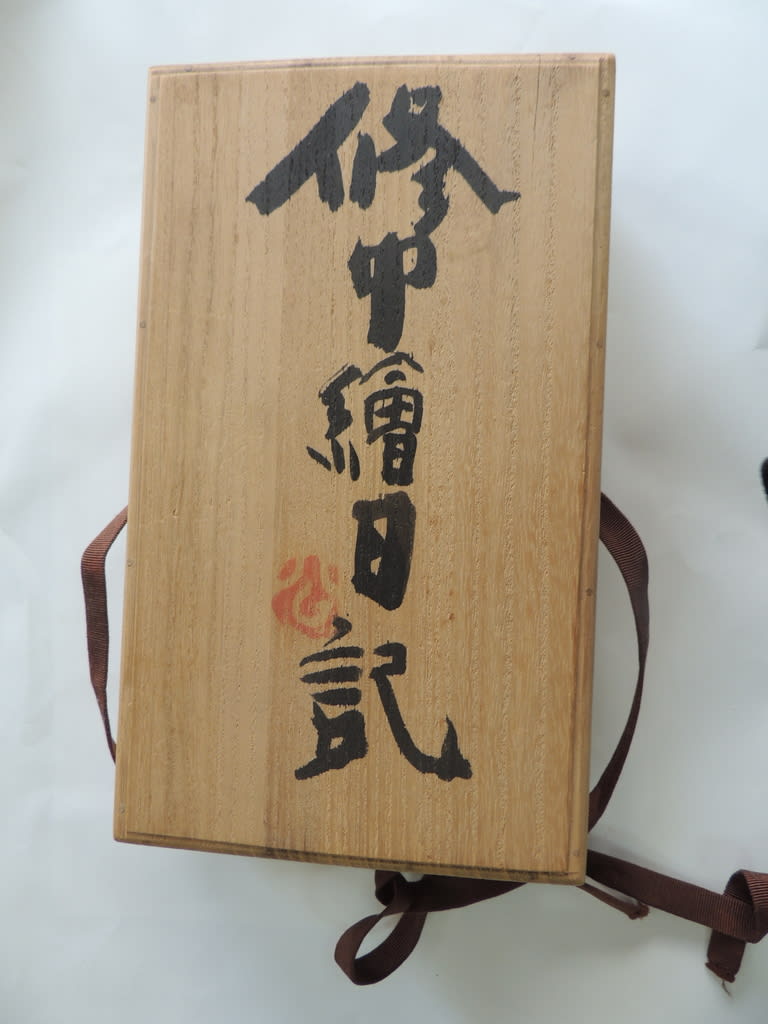 修中繪日記